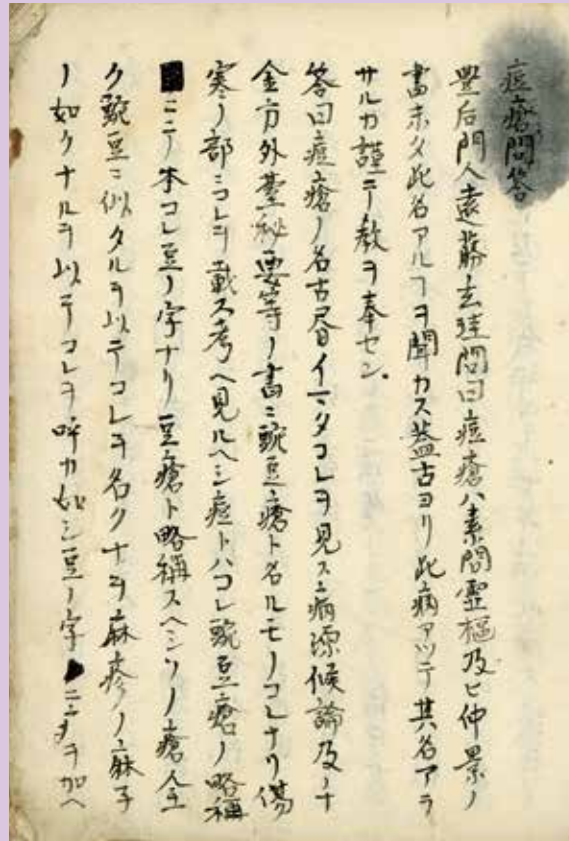 痘瘡問答
豊后門人遠藤玄珪問曰痘瘡ハ素問霊枢及ヒ仲景ノ
書未タ此名アルヿヲ聞カス蓋古ヨリ此病アツテ其名アラ
サルカ謹テ教ヲ奉セン
答曰痘瘡ノ名古昔イマタコレヲ見ス病源候論及ヒ千
金方外臺秘要等ノ書ニ豌豆瘡ト名ルモノコレナリ傷
寒ノ部ニコレヲ載ス考ヘ見ルヘシ痘トハコレ豌豆瘡ノ略稱
ニテ本コレ豆ノ字ナリ豆瘡ト略稱スヘシソノ瘡全
ク豌豆ニ似タルヲ以テコレヲ名クナヲ麻疹ノ麻子
ノ如クナルヲ以テコレヲ呼カ如シ豆ノ字ニ疒ヲ加ヘ